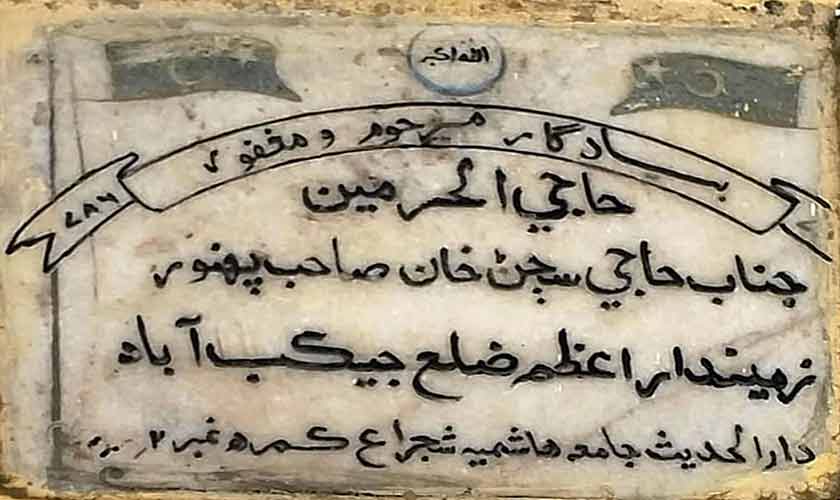 الله اکبر
بیادگار مرحوم و مغفور
۷۸۶
حاجي الحرمین
جناب حاجي سڄڻ خان صاحب پهنور
زمیندار اعظم ضلع جیکب آباد
دار الحدیث جامعه هاشمیه شجراع کمره نمبر ۲